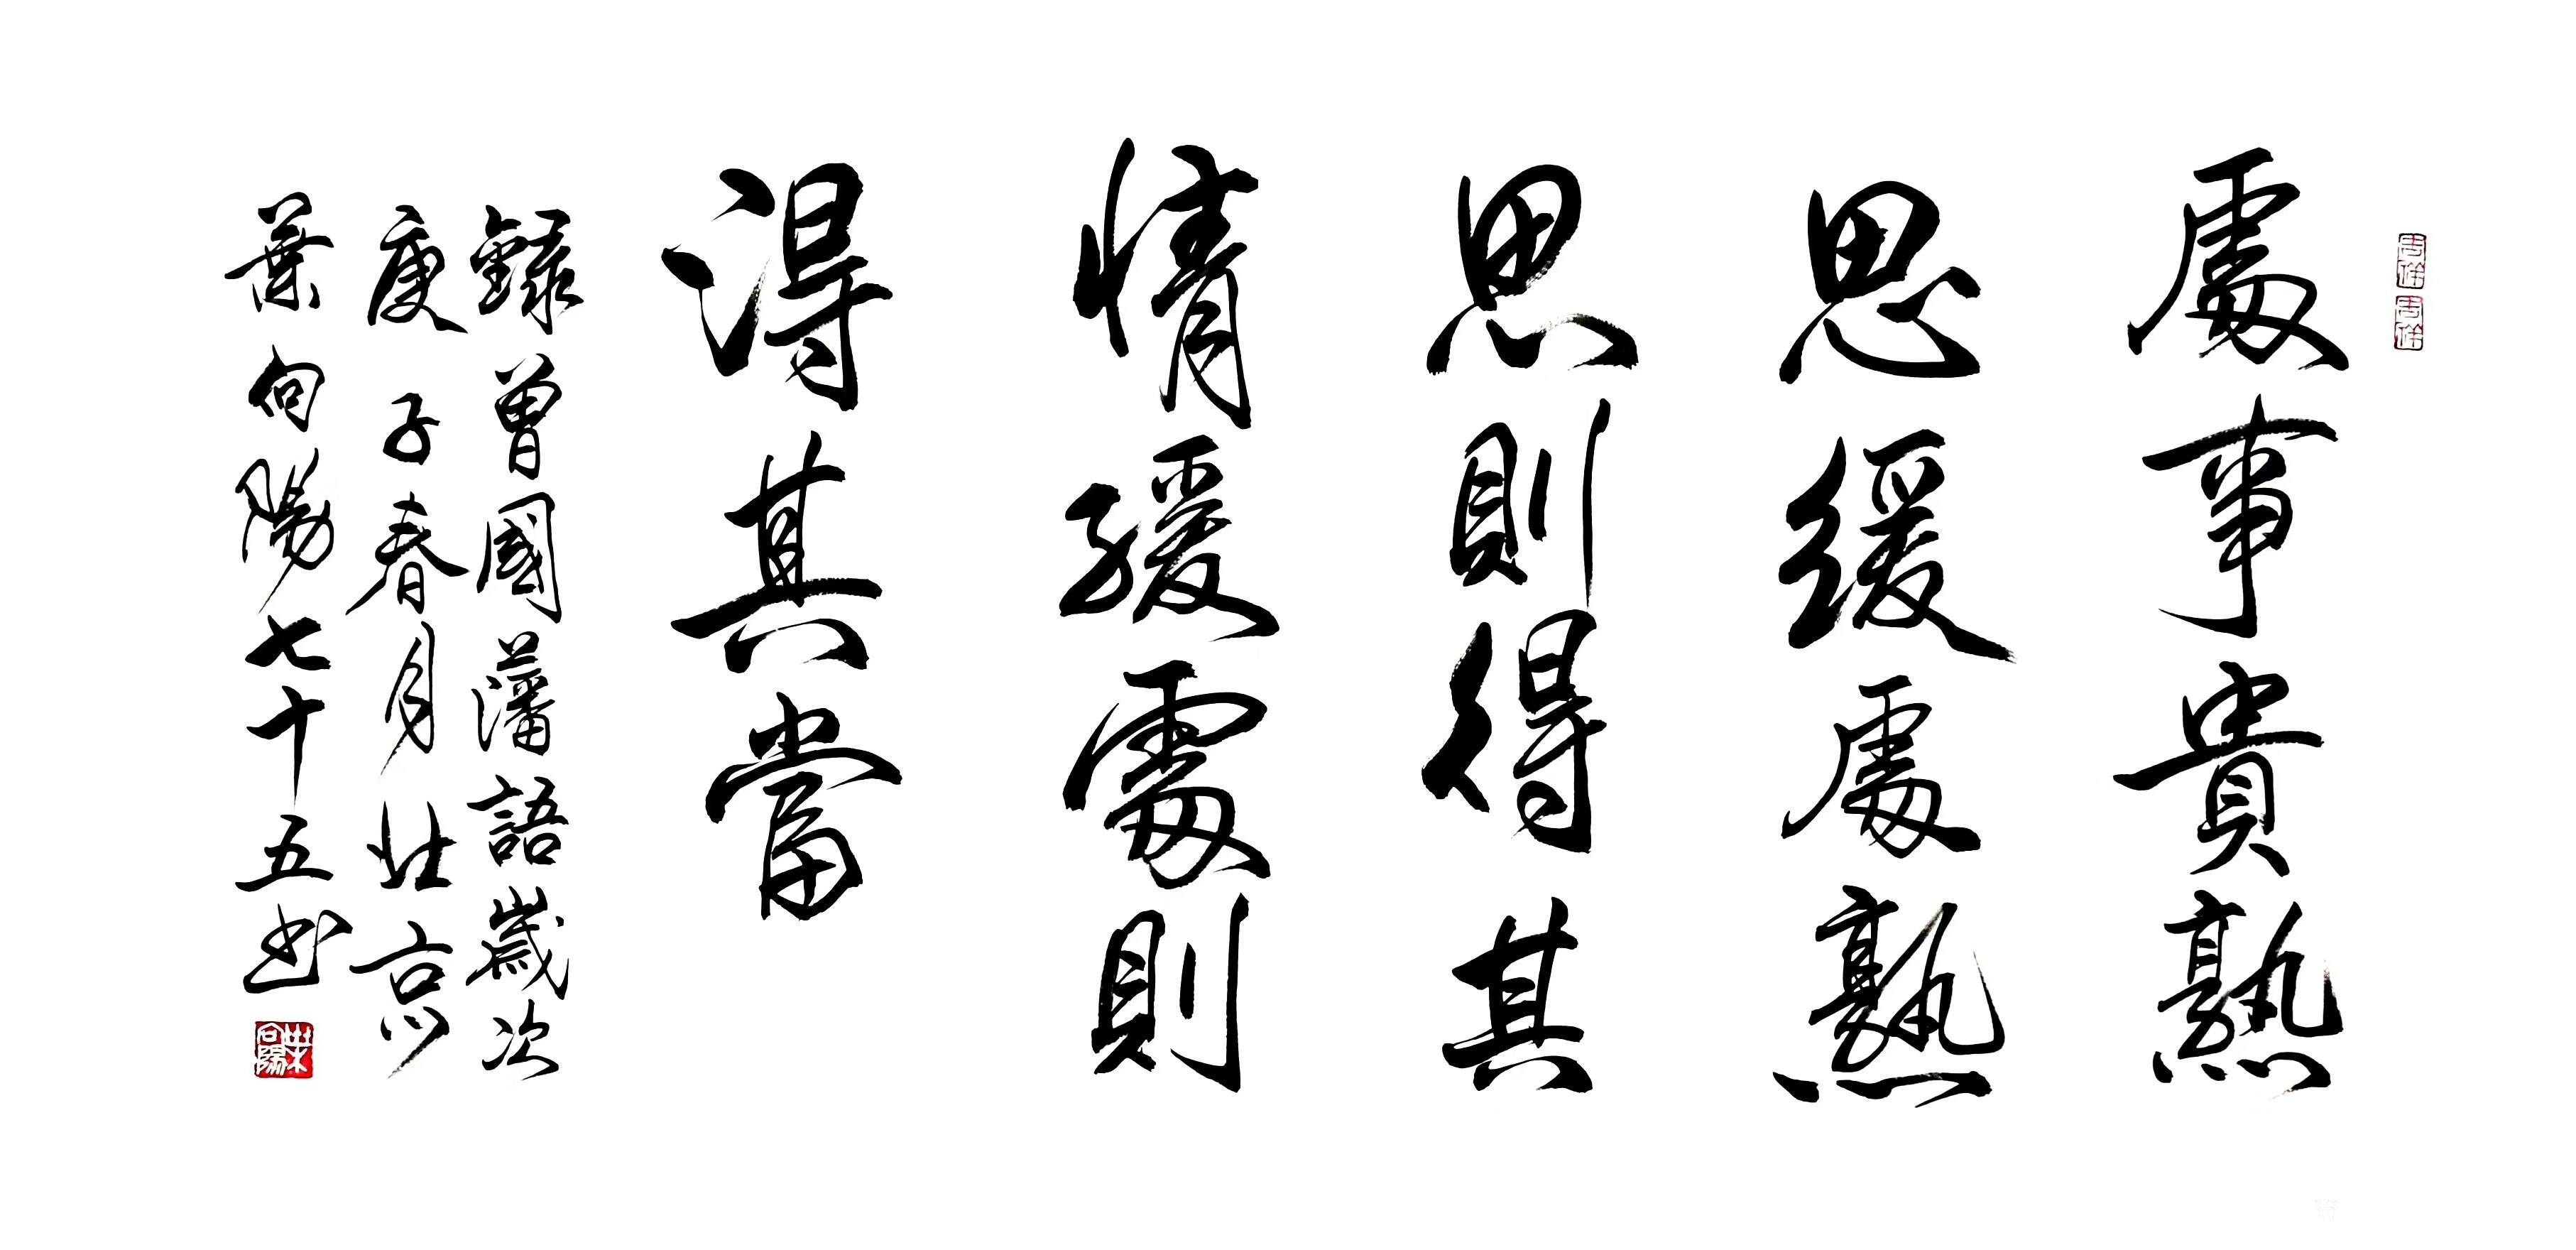 吉祥
吉祥
處事貴熟
思緩處熟
思則得其
情緩處則
得其當
錄曾國藩語歲次
庚子春月北京
葉向陽七十五书
葉向陽